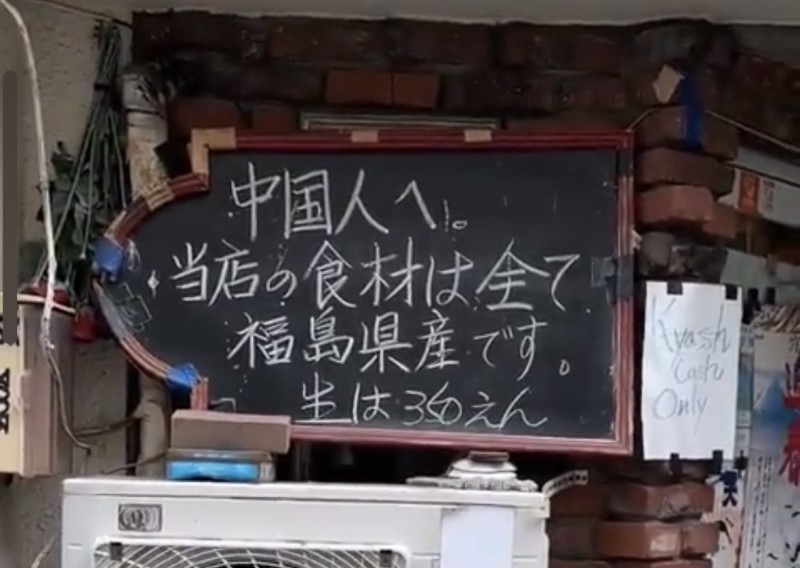 中国人へ。
当店の食材は全て
福島県産です。
生は350えん
Cash
Only